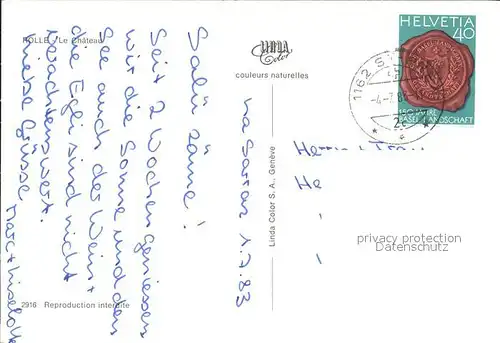 ROLLE - Le Château
LINDA
Color
couleurs naturelles
HELVETIA
40
150 JAHRE
BASEL-LANDSCHAFT
1162 ST
-4-7.8
La Sarraz 1.7.83
Salü zäme!
Seit 2 Wochen geniessen
wir die Sonne und den
See auch der Weis +
die Egli sind nicht
verachtenswert.
Liebe Grüsse
Marc + Liselotte
Linda Color S. A., Genève
Herrn
privacy protection
oldthing.de
2916 Reproduction interdite